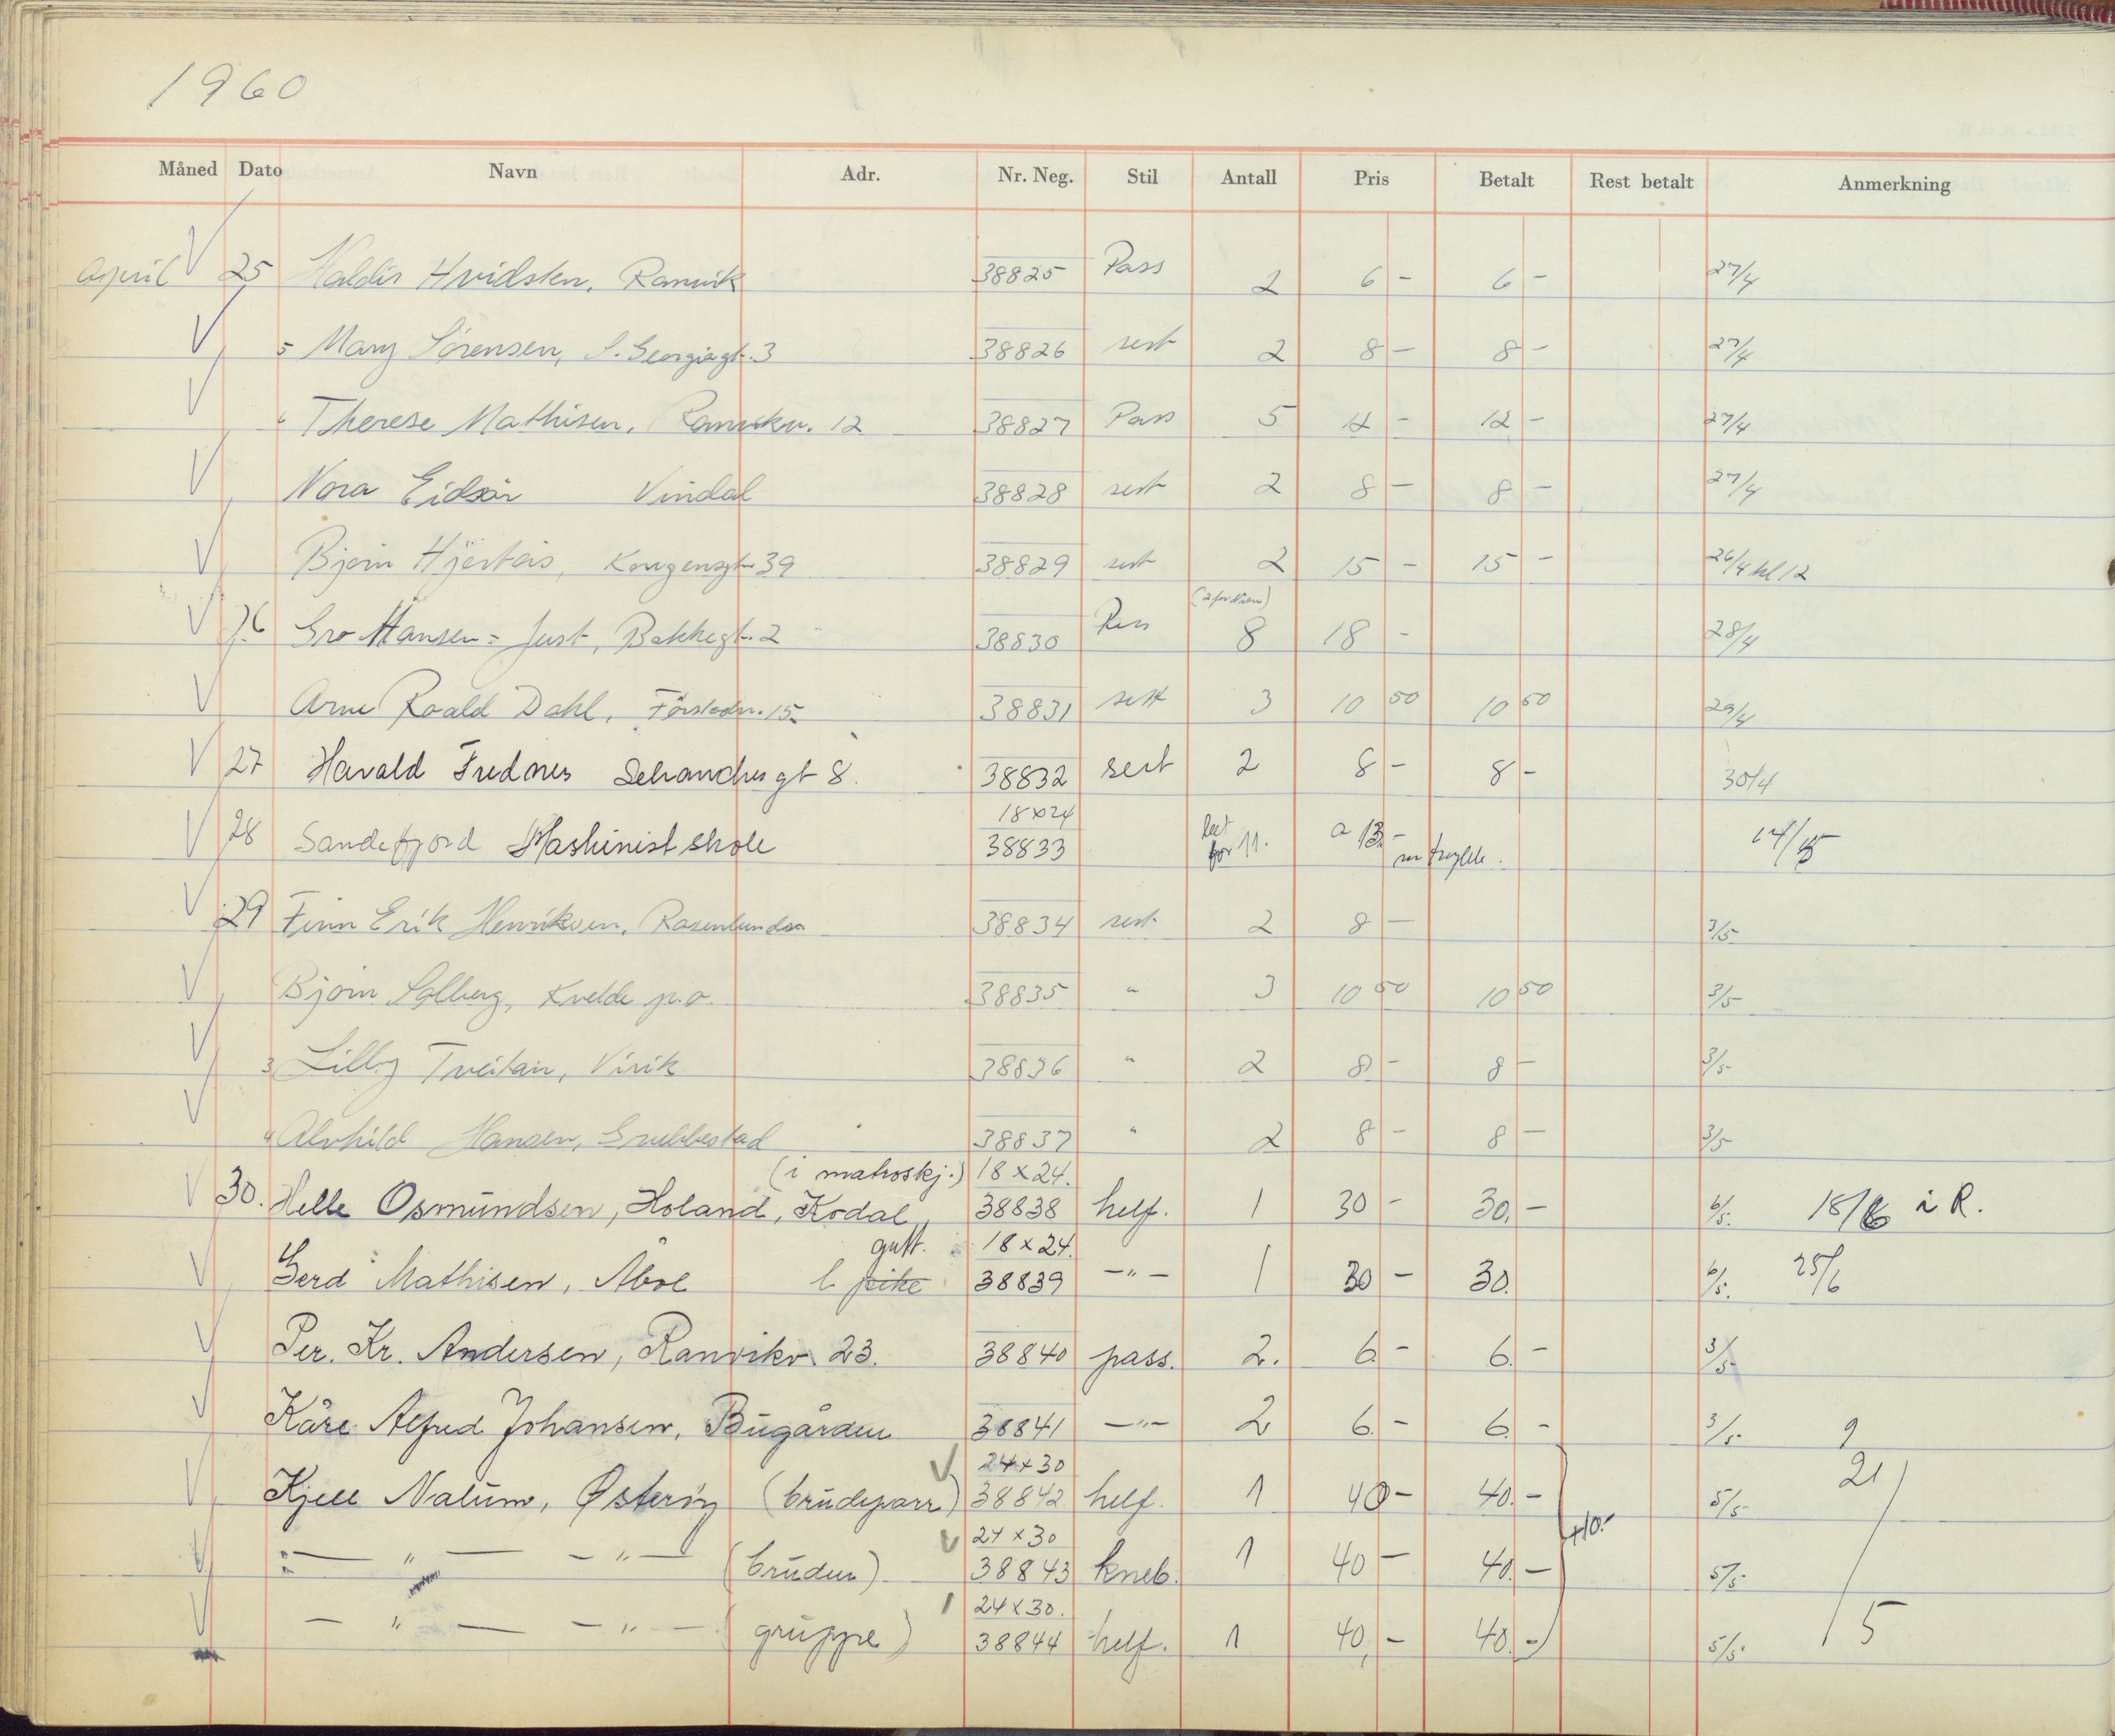 1960
Måned Dato Navn Adr. Nr. Neg. Stil Antall Pris Betalt Rest betalt Anmerkning
April 25 Haldis Hvidsten, Ranvik 38825 Pass 2 6 - 6 - 27/4
5 Mary Sørensen, S. Georgiagt. 3 38826 sert 2 8 - 8 - 27/4
Therese Mathisen, Ranvikv. 12 38827 Pass 5 12 - 12 - 27/4
Nora Eidsår Vindal 38828 sert 2 8 - 8 - 27/4
Bjørn Hjertås, Kongensgt 39 38829 sert 2 15 - 15 - 26/4 kl 12
26 Gro Hansen - Just, Bakkegt. 2 38830 Pass 8 18 - 28/4
Arne Roald Dahl, 15. 38831 sert 3 10 50 10 50 29/4
27 Harald Fednes gt 8. 38832 sert 2 8 - 8 - 30/4
18x24
28 Sandefjord Maskinistskole 38833 for 11. a 13.- 14/5
29 Finn Erik Henriksen, 38834 sert 2 8 - 3/5
Bjørn Solberg, Kvelde p.o. 38835 " 3 10 50 10 50 3/5
3 Lilly Tveitan, Virik 38836 " 2 8 - 8 - 3/5
4 Alvhild Hansen, Grubbestad 38837 " 2 8 - 8 - 3/5
(i matroskj.) 18 x 24.
30. Helle Osmundsen, Holand, Kodal, 38838 helf. 1 30 - 30.- 6/5. 18/6 i R.
gutt. 18 x 24.
Gerd Mathisen, Åbol l pike 38839 -"- 1 30 - 30. 6/5. 25/6
Per. Kr. Andersen, Ranvikv 23. 38840 pass. 2. 6. - 6. - 3/5
Kåre Alfred Johansen, Bugården 38841 -"- 2 6. - 6. - 3/5. 9
24x30
Kjell Nalum, Østerøy (brudeparr) 38842 helf. 1 40 - 40.- 5/5 21/
24 x 30
-"- -"- (bruden) 38843 kneb. 1 40 - 40.- 5/5
24 x 30.
-"- -"- (gruppe) 38844 helf. 1 40, - 40.- 5/5. 5